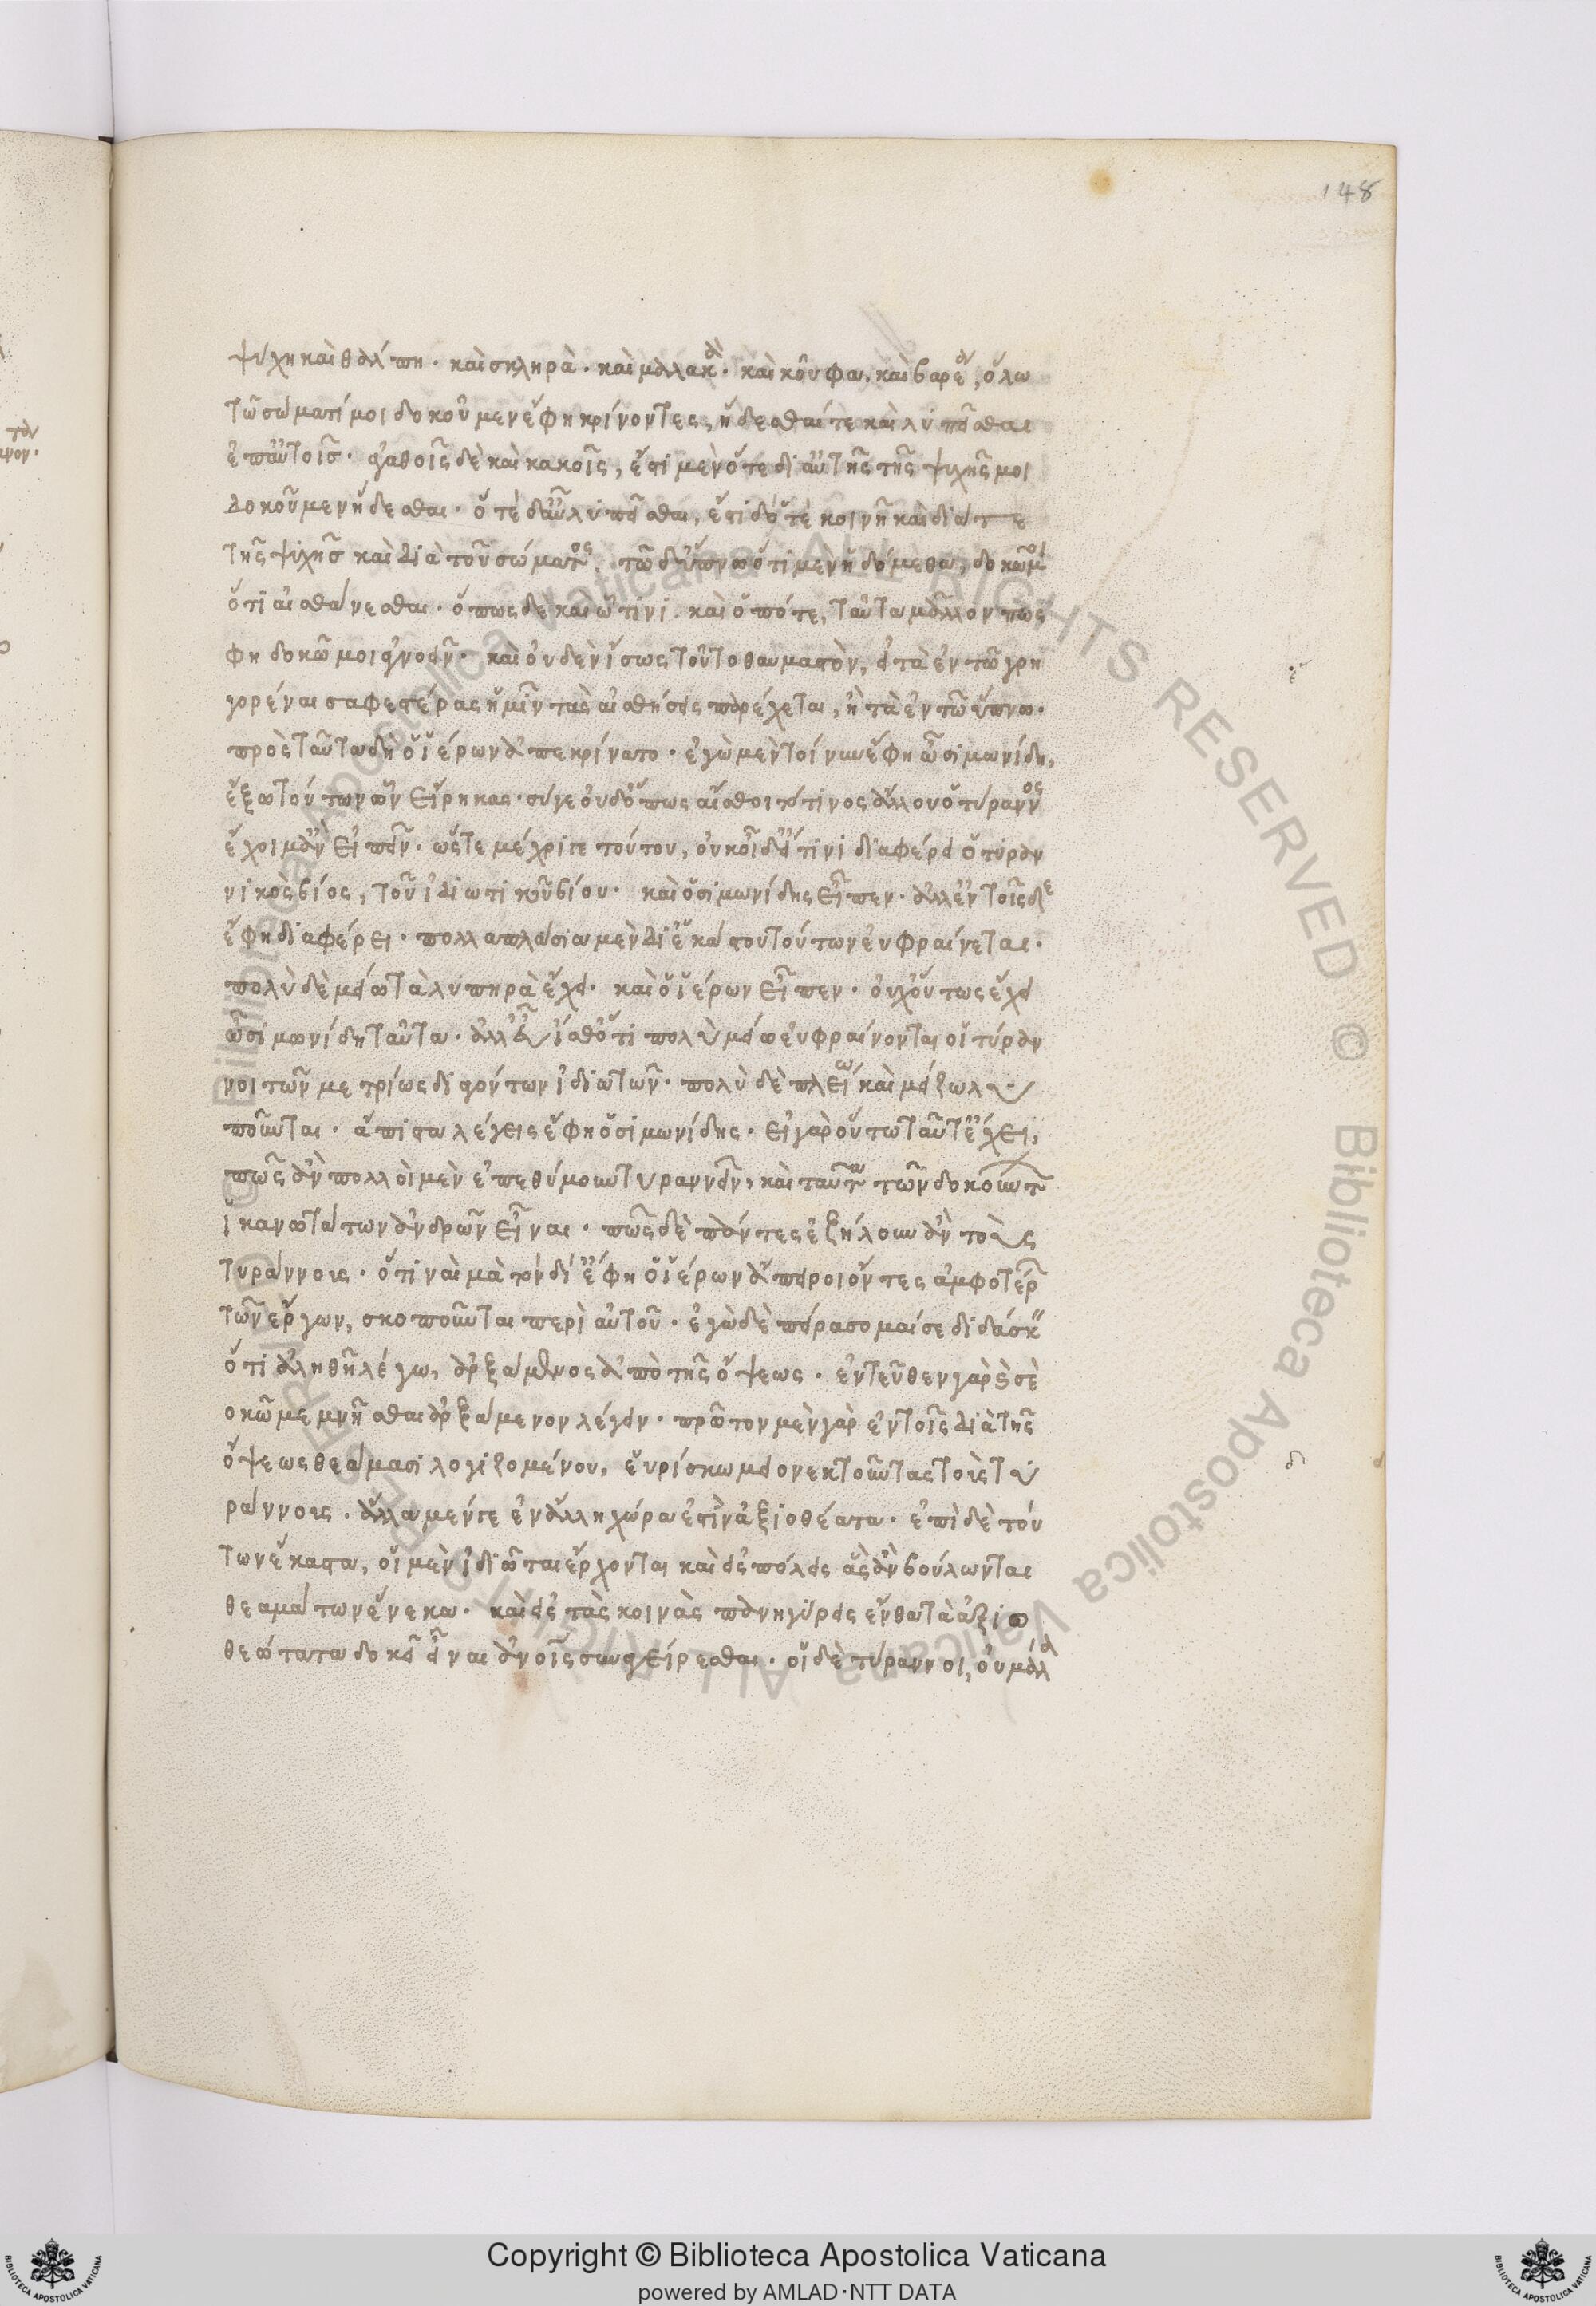 148
ψύχη καὶ θάλπη· καὶ σκληρὰ· καὶ μαλακὰ· καὶ κοῦφα, καὶ βαρέα, ὅλω
τῶ σώματί μοι δοκοῦμεν ἔφη κρίνοντες, ἥδεσθαί τε καὶ λυπεῖσθαι
ἐπ' αὐτοῖς· ἀγαθοῖς δὲ καὶ κακοῖς, ἔστι μὲν ὅτε δι' αὐτῆς τῆς ψυχῆς μοι
δοκοῦμεν ἥδεσθαι· ὅτὲ δ' αὖ λυπεῖσθαι, ἔστι δ' ὅτὲ κοινῆ καὶ διά τε
τῆς ψυχῆς καὶ διὰ τοῦ σώματος. τῶ δ' ὕπνω ὅτι μὲν ἡδόμεθα, δοκῶ μοι
ὅτι αἰσθάνεσθαι· ὅπως δὲ καὶ ὧτινι· καὶ ὁπότε, ταῦτα μᾶλλον πως
φη δοκῶ μοι ἀγνοεῖν· καὶ οὐδὲν ἴσως τοῦτο θαυμαστὸν, εἰ τὰ ἐν τῶ γρη
γορέναι σαφεστέρας ἡμῖν τὰς αἰσθήσεις παρέχεται, ἢ τὰ ἐν τῶ ὕπνω·
πρὸς ταῦτα δὴ ὁ ἱέρων ἀπεκρίνατο· ἐγὼ μὲν τοίνυν ἔφη ὦ σιμωνίδη,
ἔξω τούτων ὧν εἴρηκας· σύγε οὐδ' ὅπως αἴσθοιτό τινος ἄλλου ὁ τύραννος
ἔχοιμ' ἂν εἰπεῖν· ὥστε μέχρι γε τούτου, οὐκ οἶδ' εἴ τινι διαφέρει ὁ τυραν
νικὸς βίος, τοῦ ἰδιωτικοῦ βίου· καὶ ὁ σιμωνίδης εἶπεν· ἀλλ' ἐν τοῖς δὲ
ἔφη διαφέρει· πολλαπλάσια μὲν δι' ἑκάστου τούτων εὐφραίνεται·
πολὺ δὲ μείω τὰ λυπηρὰ ἔχει· καὶ ὁ ἱέρων εἶπεν· οὐχ οὕτως ἔχει
ὦ σιμωνίδη ταῦτα· ἀλλ' εὖ ἴσθ' ὅτι πολὺ μείω εὐφραίνονται οἱ τύραν
νοι τῶν μετρίως διαγόντων ἰδιωτῶν· πολὺ δὲ πλείω καὶ μείζω λυ
ποῦνται· ἄπιστα λέγεις ἔφη ὁ σιμωνίδης· εἰ γὰρ οὕτω ταῦτ' ἔχει,
πῶς ἂν πολλοὶ μὲν ἐπεθύμουν τυραννεῖν, καὶ ταῦτα τῶν δοκούντων
ἱκανωτάτων ἀνδρῶν εἶναι· πῶς δὲ πάντες ἐζήλουν ἂν τοὺς
τυράννους· ὅτι ναὶ μὰ τὸν δί' ἔφη ὁ ἱέρων ἄπειροι ὄντες ἀμφοτέρων
τῶν ἔργων, σκοποῦνται περὶ αὐτοῦ· ἐγὼ δὲ πειράσομαί σε διδάσκειν
ὅτι ἀληθῆ λέγω, ἀρξάμενος ἀπὸ τῆς ὄψεως· ἐντεῦθεν γὰρ σὲ
οκῶ μεμνῆσθαι ἀρξάμενον λέγειν· πρῶτον μὲν γὰρ ἐν τοῖς διὰ τῆς
ὄψεως θεάμασι λογιζομένου, εὑρίσκω μειονεκτοῦντας τοὺς τυ
ράννους· ἄλλα μέν γε ἐν ἄλλη χώρα ἐστὶν ἀξιοθέατα· ἐπὶ δὲ τού
των ἕκαστα, οἱ μὲν ἰδιῶται ἔρχονται καὶ εἰς πόλεις ἃς ἂν βούλωνται
θεαμάτων ἕνεκα· καὶ εἰς τὰς κοινὰς πανηγύρεις ἔνθα τὰ ἀξιο
θεώτατα δοκεῖ εἶναι ἀνοῖς συναγείρεσθαι· οἱ δὲ τύραννοι, οὐ μάλα
Copyright © Biblioteca Apostolica Vaticana
powered by AMLAD·NTT DATA